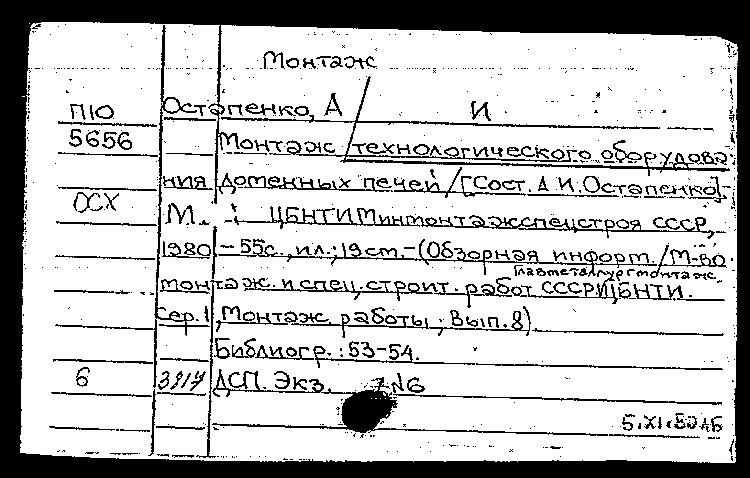 Монтаж
П10 Остапенко, А И
5656 Монтаж технологического оборудова
ния доменных печей / [Сост. А И. Остапенко].-
ОСХ М. : ЦБНТИ Минмонтажспецстроя СССР,
1980 – 55с., ил.; 19см. – (Обзорная информ. / М-во
Главметаллургмонтаж.
монтаж. и спец. строит. работ СССР. ЦБНТИ.
Сер. 1, Монтаж. работы ; Вып. 8).
Библиогр.: 53-54.
6 3917 ДСП. Экз. №6
5.XI.80